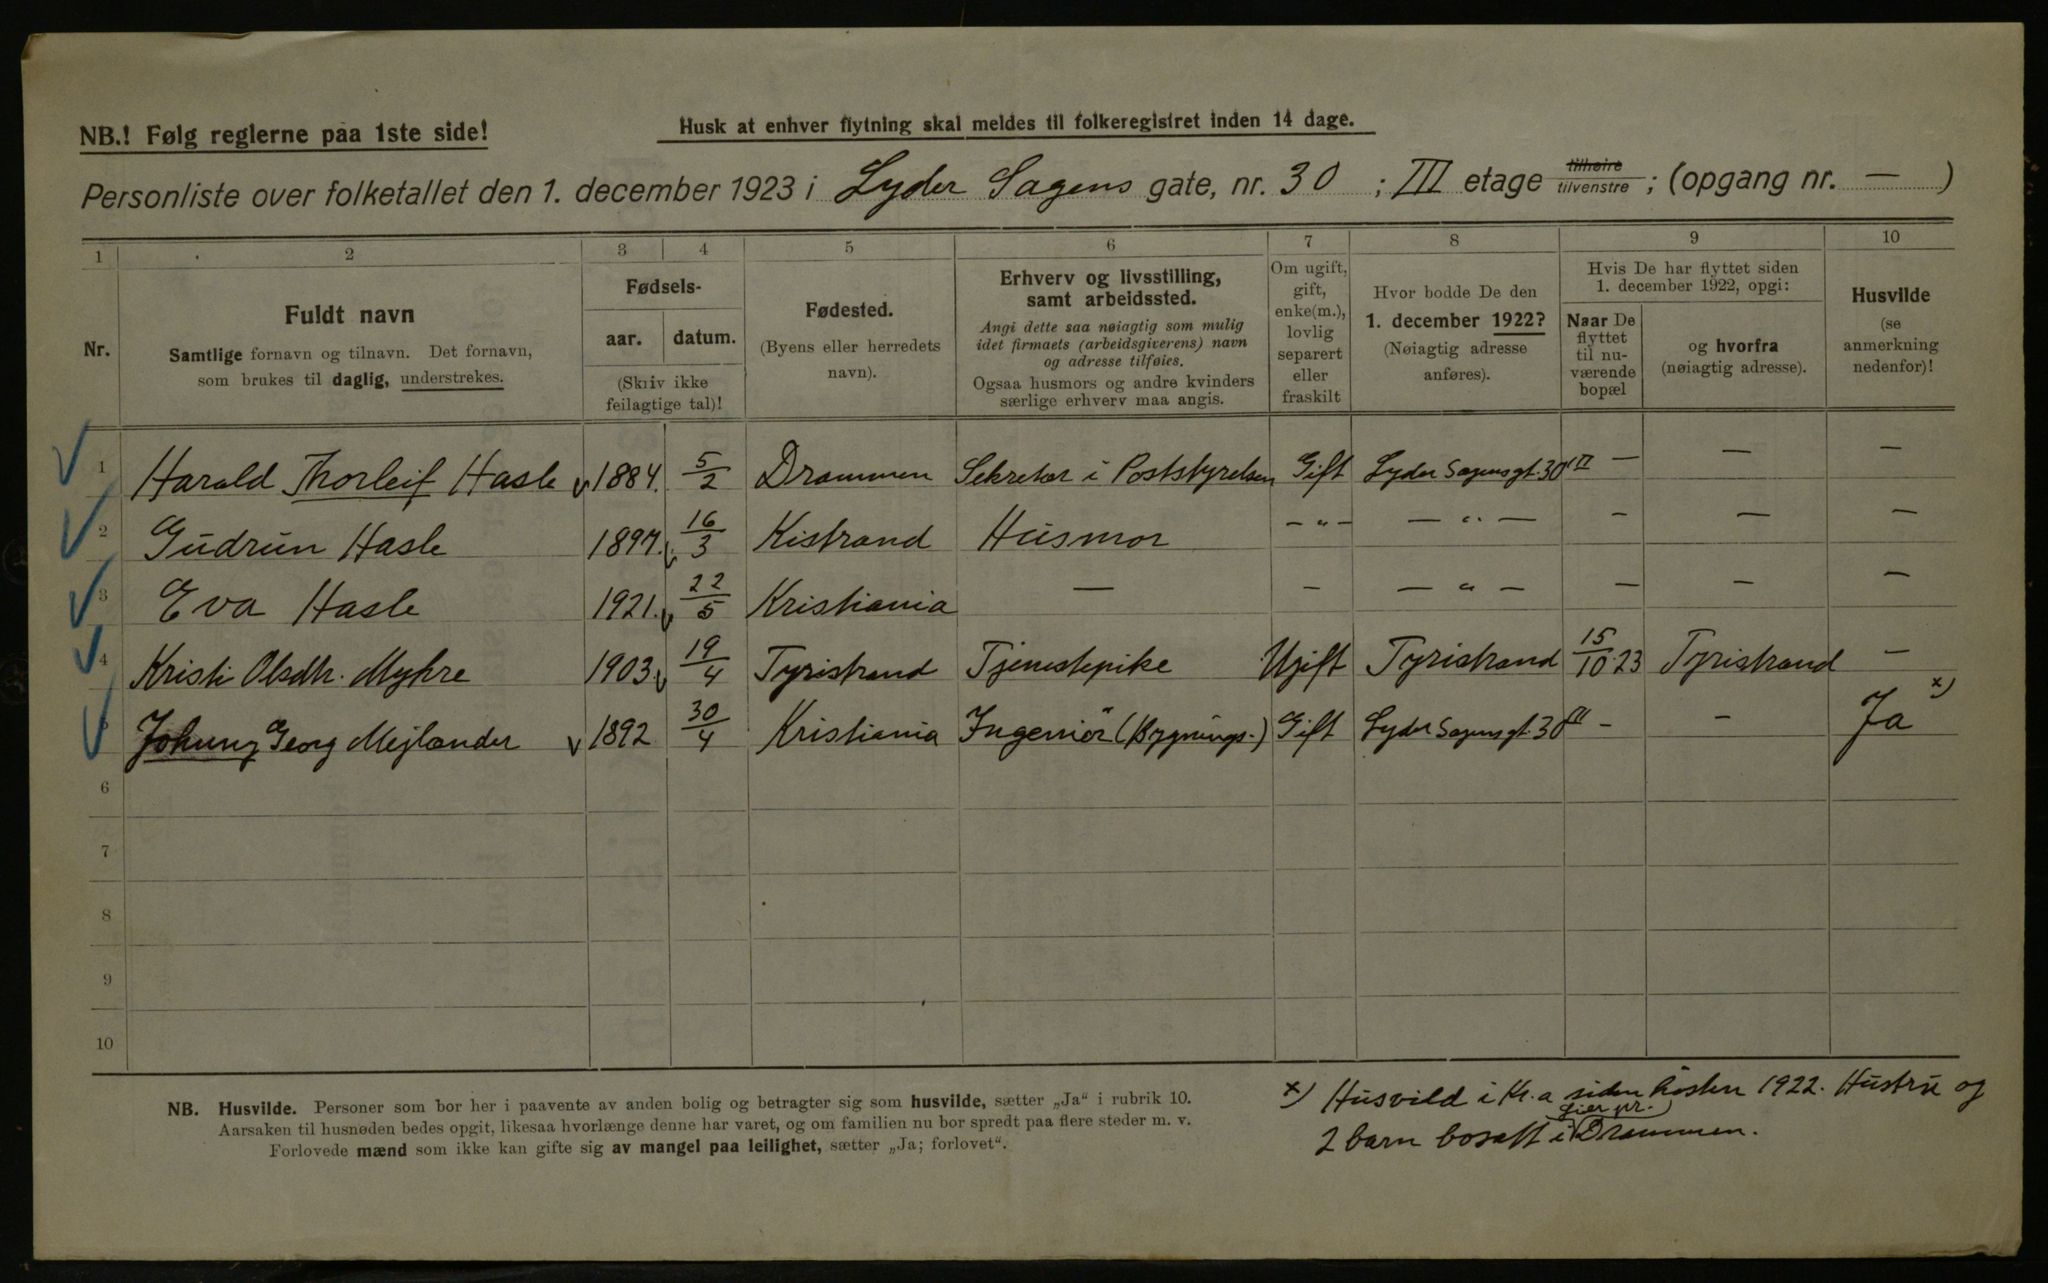 NB.! Følg reglerne paa 1ste side!
Husk at enhver flytning skal meldes til folkeregistret inden 14 dage.
Personliste over folketallet den 1. december 1923 i Lyder Sagens gate, nr. 30 ; III etage tilhøire tilvenstre ; (opgang nr. — )
1 2 3 4 5 6 7 8 9 10
Nr.
Fuldt navn
Samtlige fornavn og tilnavn. Det fornavn,
som brukes til daglig, understrekes.
Fødsels-
aar. datum.
(Skriv ikke
feilagtige tal)!
Fødested.
(Byens eller herredets
navn).
Erhverv og livsstilling,
samt arbeidssted.
Angi dette saa nøiagtig som mulig
idet firmaets (arbeidsgiverens) navn
og adresse tilføies.
Ogsaa husmors og andre kvinders
særlige erhverv maa angis.
Om ugift,
gift,
enke(m.),
lovlig
separert
eller
fraskilt
Hvor bodde De den
1. december 1922?
(Nøiagtig adresse
anføres).
Hvis De har flyttet siden
1. december 1922, opgi:
Naar De
flyttet
til nu-
værende
bopæl
og hvorfra
(nøiagtig adresse).
Husvilde
(se
anmerkning
nedenfor)!
1 Harald Thorleif Hasle 1884. 5/2 Drammen Sekretær i Poststyrelsen Gift Lyder Sagensgt. 30 III — — —
2 Gudrun Hasle 1897. 16/3 Kistrand Husmor — " — — " — — — —
3 Eva Hasle 1921. 22/5 Kristiania — — — " — — — —
4 Kristi Olsdtr. Myhre 1903. 19/4 Tyristrand Tjenestepike Ugift Tyristrand 15/10 23 Tyristrand —
5 Johnny Georg Mejlænder 1892 30/4 Kristiania Ingeniör (Bygnings-) Gift Lyder Sagensgt. 30 III — — Ja x)
6
7
8
9
10
NB. Husvilde. Personer som bor her i paavente av anden bolig og betragter sig som husvilde, sætter „Ja" i rubrik 10.
Aarsaken til husnøden bedes opgit, likesaa hvorlænge denne har varet, og om familien nu bor spredt paa flere steder m. v.
Forlovede mænd som ikke kan gifte sig av mangel paa leilighet, sætter „Ja; forlovet".
x) Husvild i Kr.a siden hösten 1922. Hustru og
2 barn bosatt i Lier pr. Drammen.